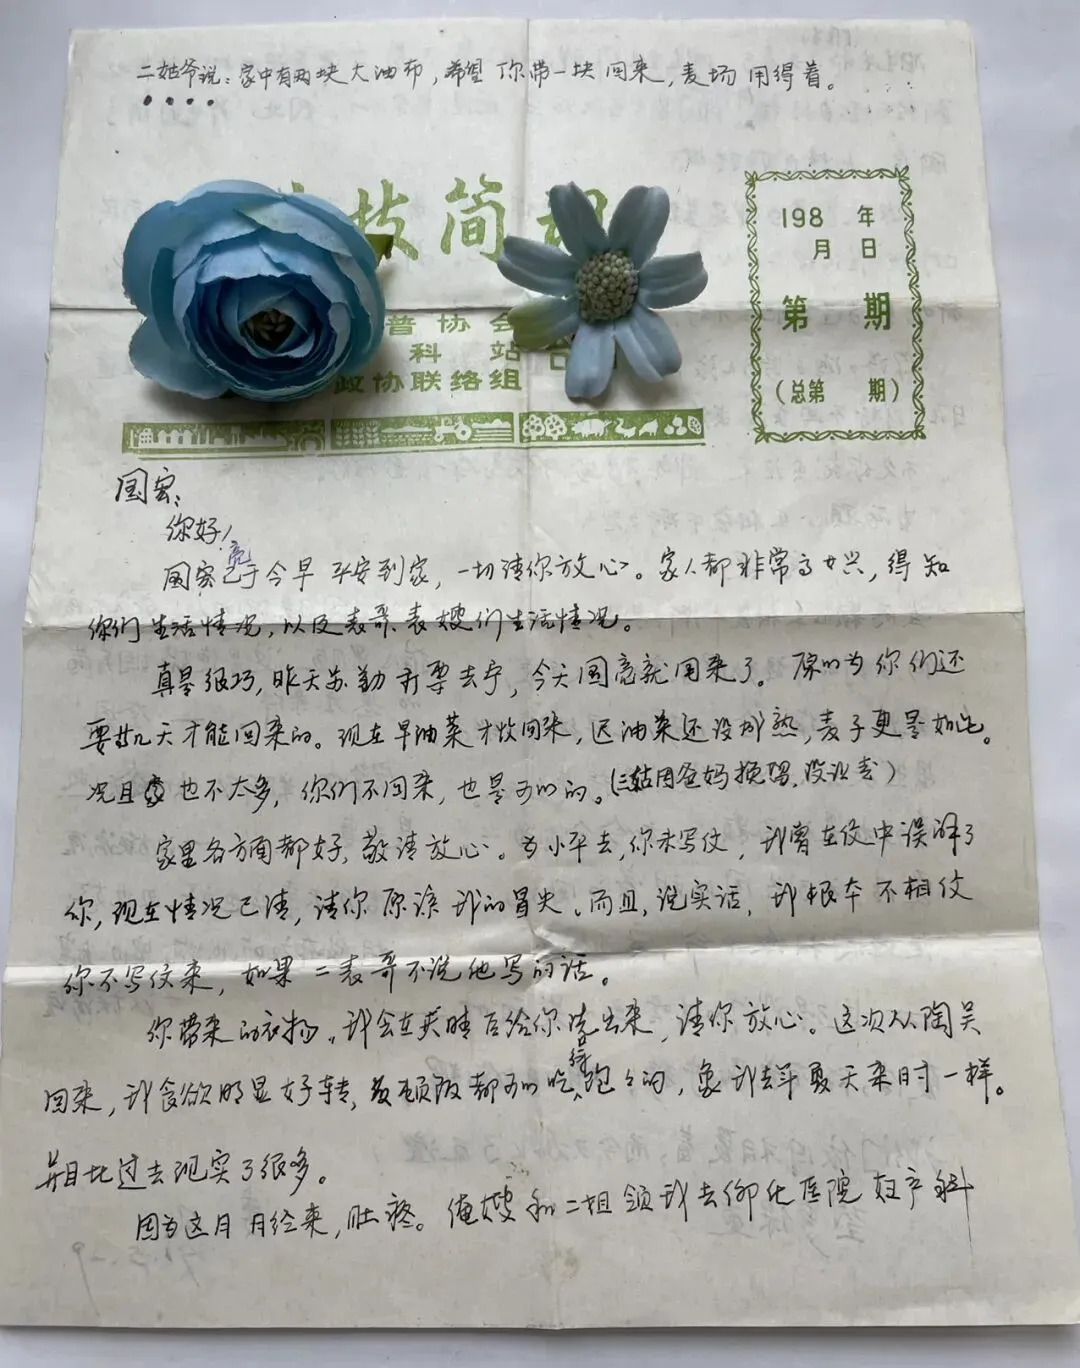 二姑爷说：家中有两块大油布，希望你带一块回来，麦场用得着。
技简
198 年
月 日
第 期
（总第 期）
普协会
科 站
政协联络组
国宏：
你好！
国宏亮已于今早平安到家，一切请你放心。家人都非常高兴，得知
你们生活情况，以及表哥、表嫂们生活情况。
真是很巧，昨天苏勤去宁，今天国亮就回来了。原以为你们还
要几天才能回来的。现在早油菜才收回来，迟油菜还没成熟，麦子更是如此。
况且也不太多，你们不回来，也是可以的。
家里各方面都好，敬请放心。为小平去，你未写信，我曾在信中误解了
你，现在情况已清，请你原谅我的冒失。而且，说实话，我根本不相信
你不写信来，如果二表哥不说他写的话。
你带来的衣物，我会在天晴后给你洗出来，请你放心。这次从陶吴
回来，我食欲明显好转，每顿饭都可以吃得饱饱的，象我去年夏天来时一样。
并且比过去现实了很多。
因为这月月经来，肚疼。俺嫂和二姐领我去仪化医院妇产科